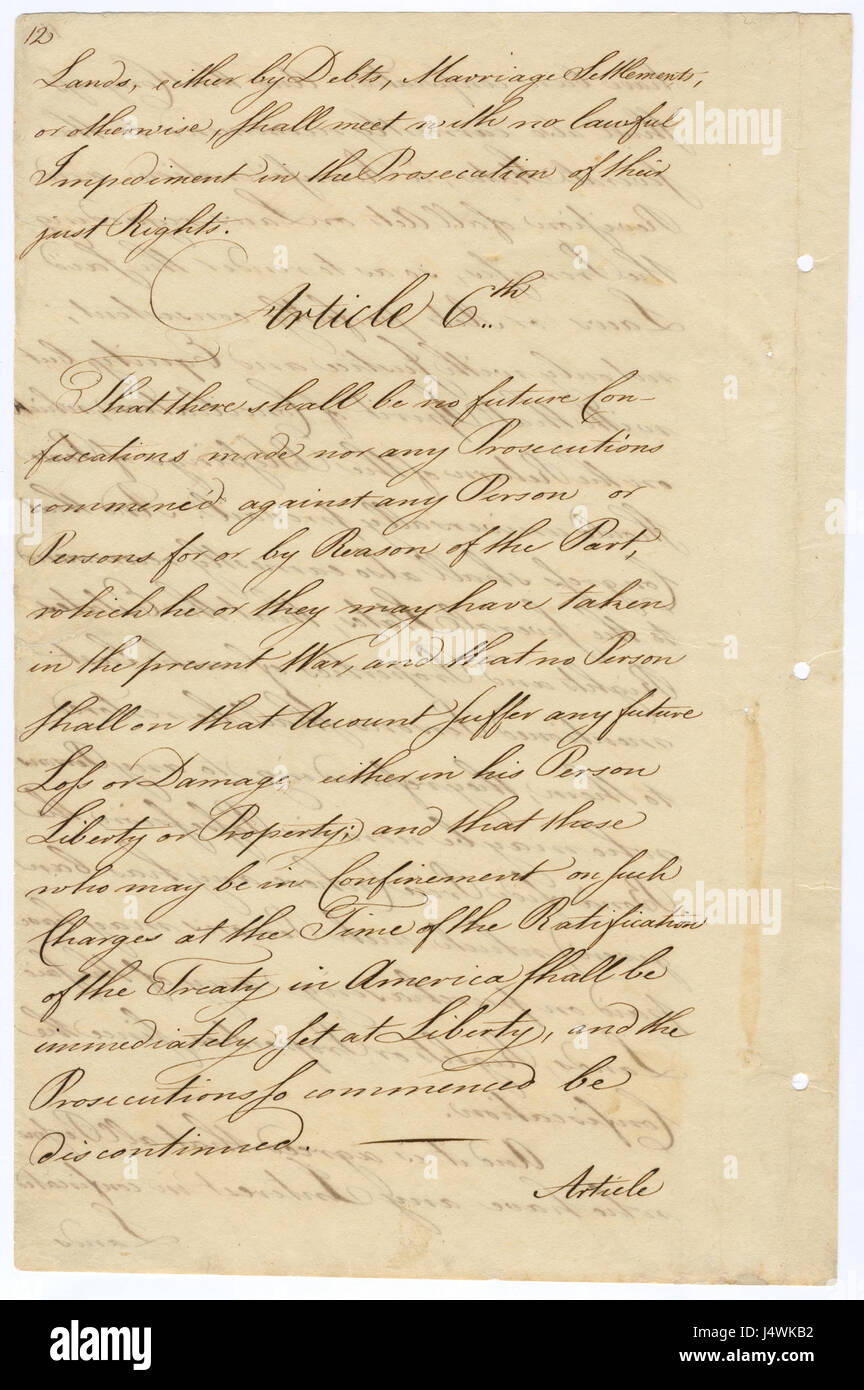 12
Lands, either by Debts, Marriage Settlements,
or otherwise, shall meet with no lawful
Impediment in the Prosecution of their
just Rights.
Article 6.th
That there shall be no future Con-
fiscations made nor any Prosecutions
commenc'd against any Person or
Persons for or by Reason of the Part,
which he or they may have taken
in the present War, and that no Person
shall on that Account suffer any future
Loss or Damage, either in his Person
Liberty or Property; and that those
who may be in Confinement on such
Charges at the Time of the Ratification
of the Treaty in America shall be
immediately set at Liberty, and the
Prosecutions so commenced be
discontinued.
Article
alamy
Image ID: J4WKB2
www.alamy.com